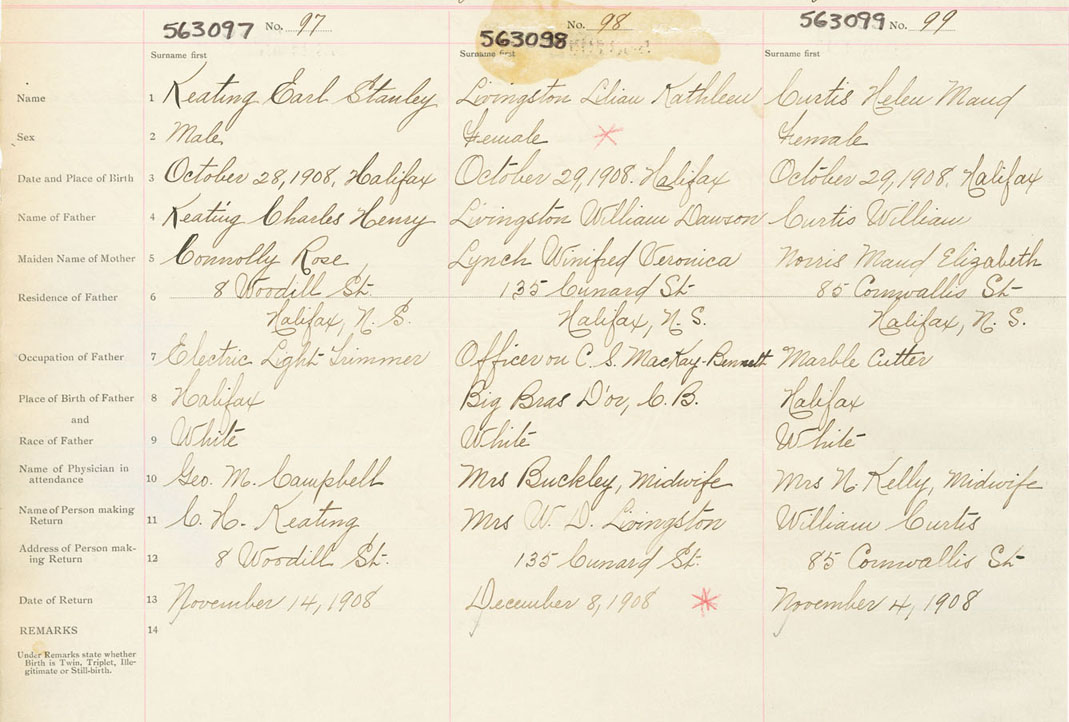 563097 No. 97
No. 98
563098
563099 No. 99
Surname first Surname first Surname first
Name 1 Keating Earl Stanley Livingston Lilian Kathleen Curtis Helen Maud
Sex 2 Male Female Female
Date and Place of Birth 3 October 28, 1908, Halifax October 29, 1908. Halifax October 29, 1908. Halifax
Name of Father 4 Keating Charles Henry Livingston William Dawson Curtis William
Maiden Name of Mother 5 Connolly Rose Lynch Winifred Veronica Norris Maud Elizabeth
Residence of Father 6 8 Woodill St. 135 Cunard St 85 Cornwallis St
Halifax, N. S. Halifax, N. S. Halifax, N. S.
Occupation of Father 7 Electric Light Trimmer Officer on C. S. MacKay-Bennett Marble Cutter
Place of Birth of Father 8 Halifax Big Bras D'or, C. B. Halifax
and
Race of Father 9 White White White
Name of Physician in
attendance 10 Geo. M. Campbell Mrs Buckley, Midwife Mrs N. Kelly, Midwife
Name of Person making
Return 11 C. H. Keating Mrs W. D. Livingston William Curtis
Address of Person mak-
ing Return 12 8 Woodill St. 135 Cunard St. 85 Cornwallis St
Date of Return 13 November 14, 1908 December 8, 1908 November 4, 1908
REMARKS 14
Under Remarks state whether
Birth is Twin, Triplet, Ille-
gitimate or Still-birth.